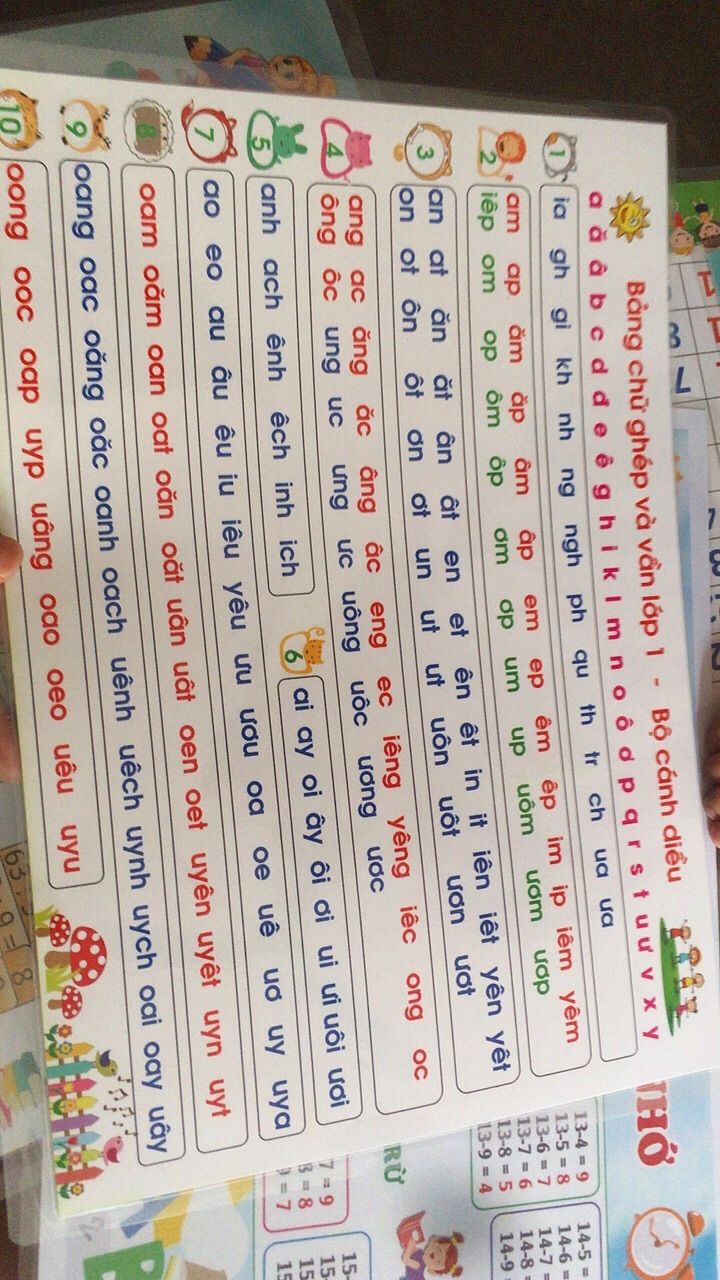 Bảng chữ ghép và vần lớp 1 - Bộ cánh diều
a ă â b c d đ e ê g h i k l m n o ô ơ p q r s t u ư v x y
1
ia gh gi kh nh ng ngh ph qu th tr ch ua ưa
2
am ap ăm ăp âm âp em ep êm êp im ip iêm yêm
iêp om op ôm ôp ơm ơp um up uôm ươm ươp
3
an at ăn ăt ân ât en et ên êt in it iên iêt yên yêt
on ot ôn ôt ơn ơt un ut ưt uôn uôt ươn ươt
4
ang ac ăng ăc âng âc eng ec iêng yêng iêc ong oc
ông ôc ung uc ưng ưc uông uôc ương ươc
5
anh ach ênh êch inh ich
6
ai ay oi ây ôi ơi ui ưi uôi ươi
7
ao eo au âu êu iu iêu yêu ưu ươu oa oe uê uơ uy uya
8
oam oăm oan oat oăn oăt uân uât oen oet uyên uyêt uyn uyt
9
oang oac oăng oăc oanh oach uênh uêch uynh uych oai oay uây
10
oong ooc oap uyp uâng oao oeo uêu uyu
NHỚ
RỪ
13-4 = 9
13-5 = 8
13-6 = 7
13-7 = 6
13-8 = 5
13-9 = 4
14-5 =
14-6 =
14-7 =
14-8 =
14-9
7 = 9
= 8
= 7
15-
15-
15
15